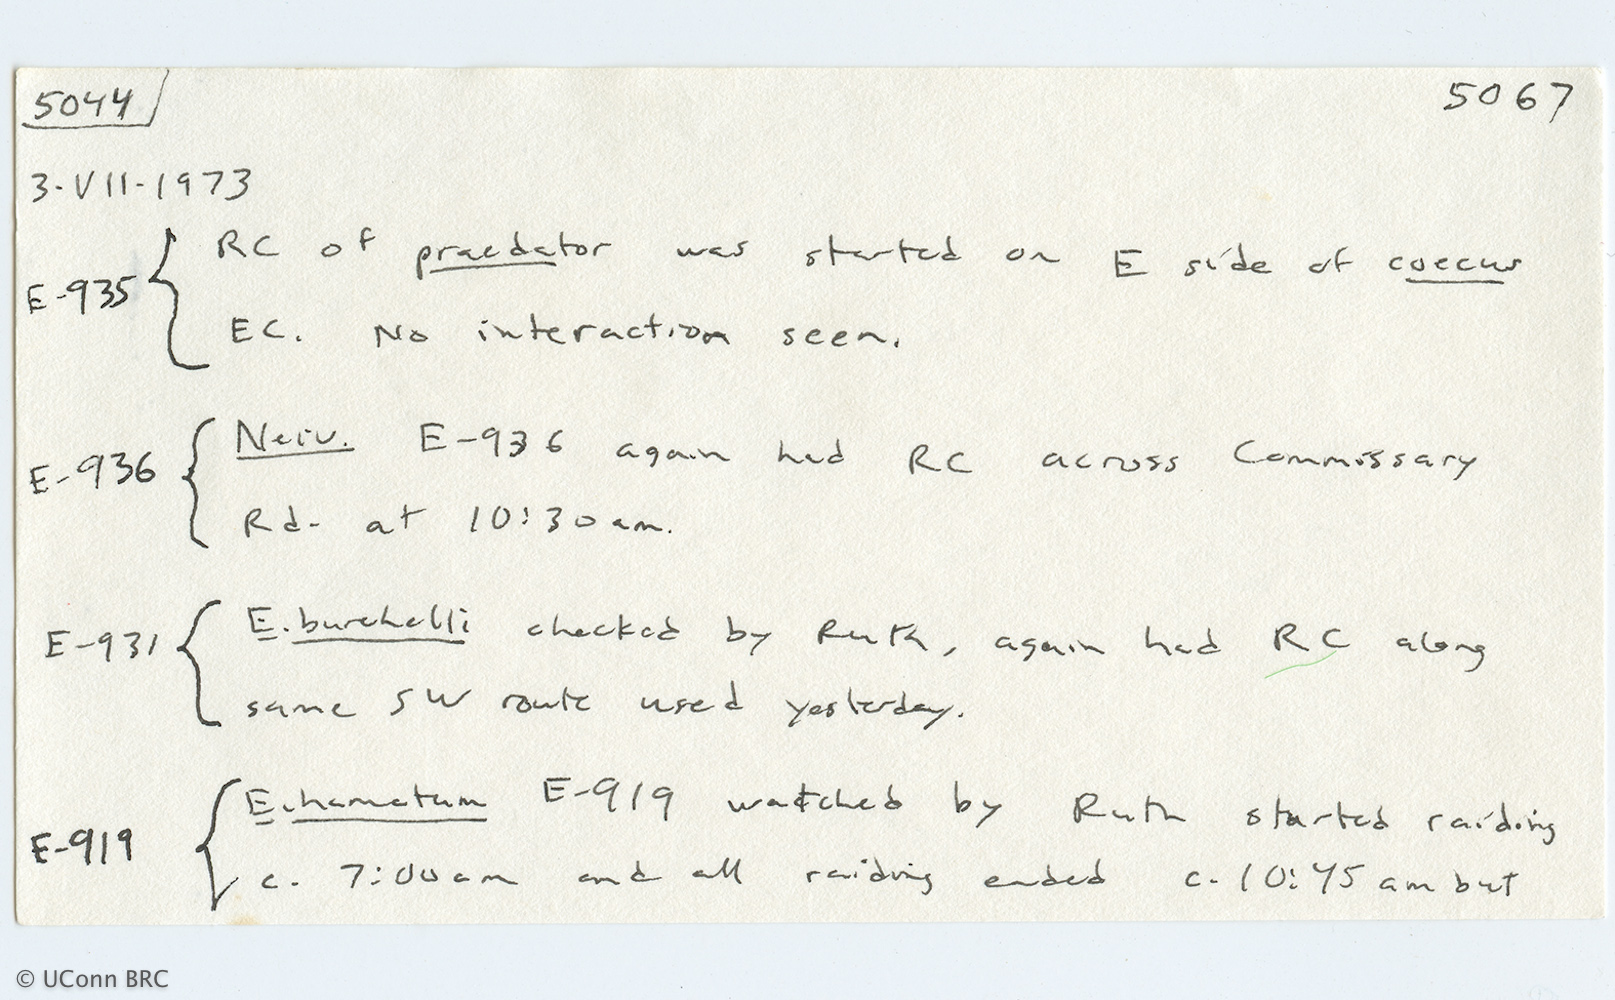 5044 5067
3-VII-1973
RC of praedator was started on E side of coecus
E-935
EC. No interaction seen.
Neiv. E-936 again had RC across Commissary
E-936
Rd. at 10:30am.
E. burchelli checked by Ruth, again had RC along
E-931
same SW route used yesterday.
E. hamatum E-919 watched by Ruth started raiding
E-919
c. 7:00am and all raiding ended c. 10:45 am but
© UConn BRC